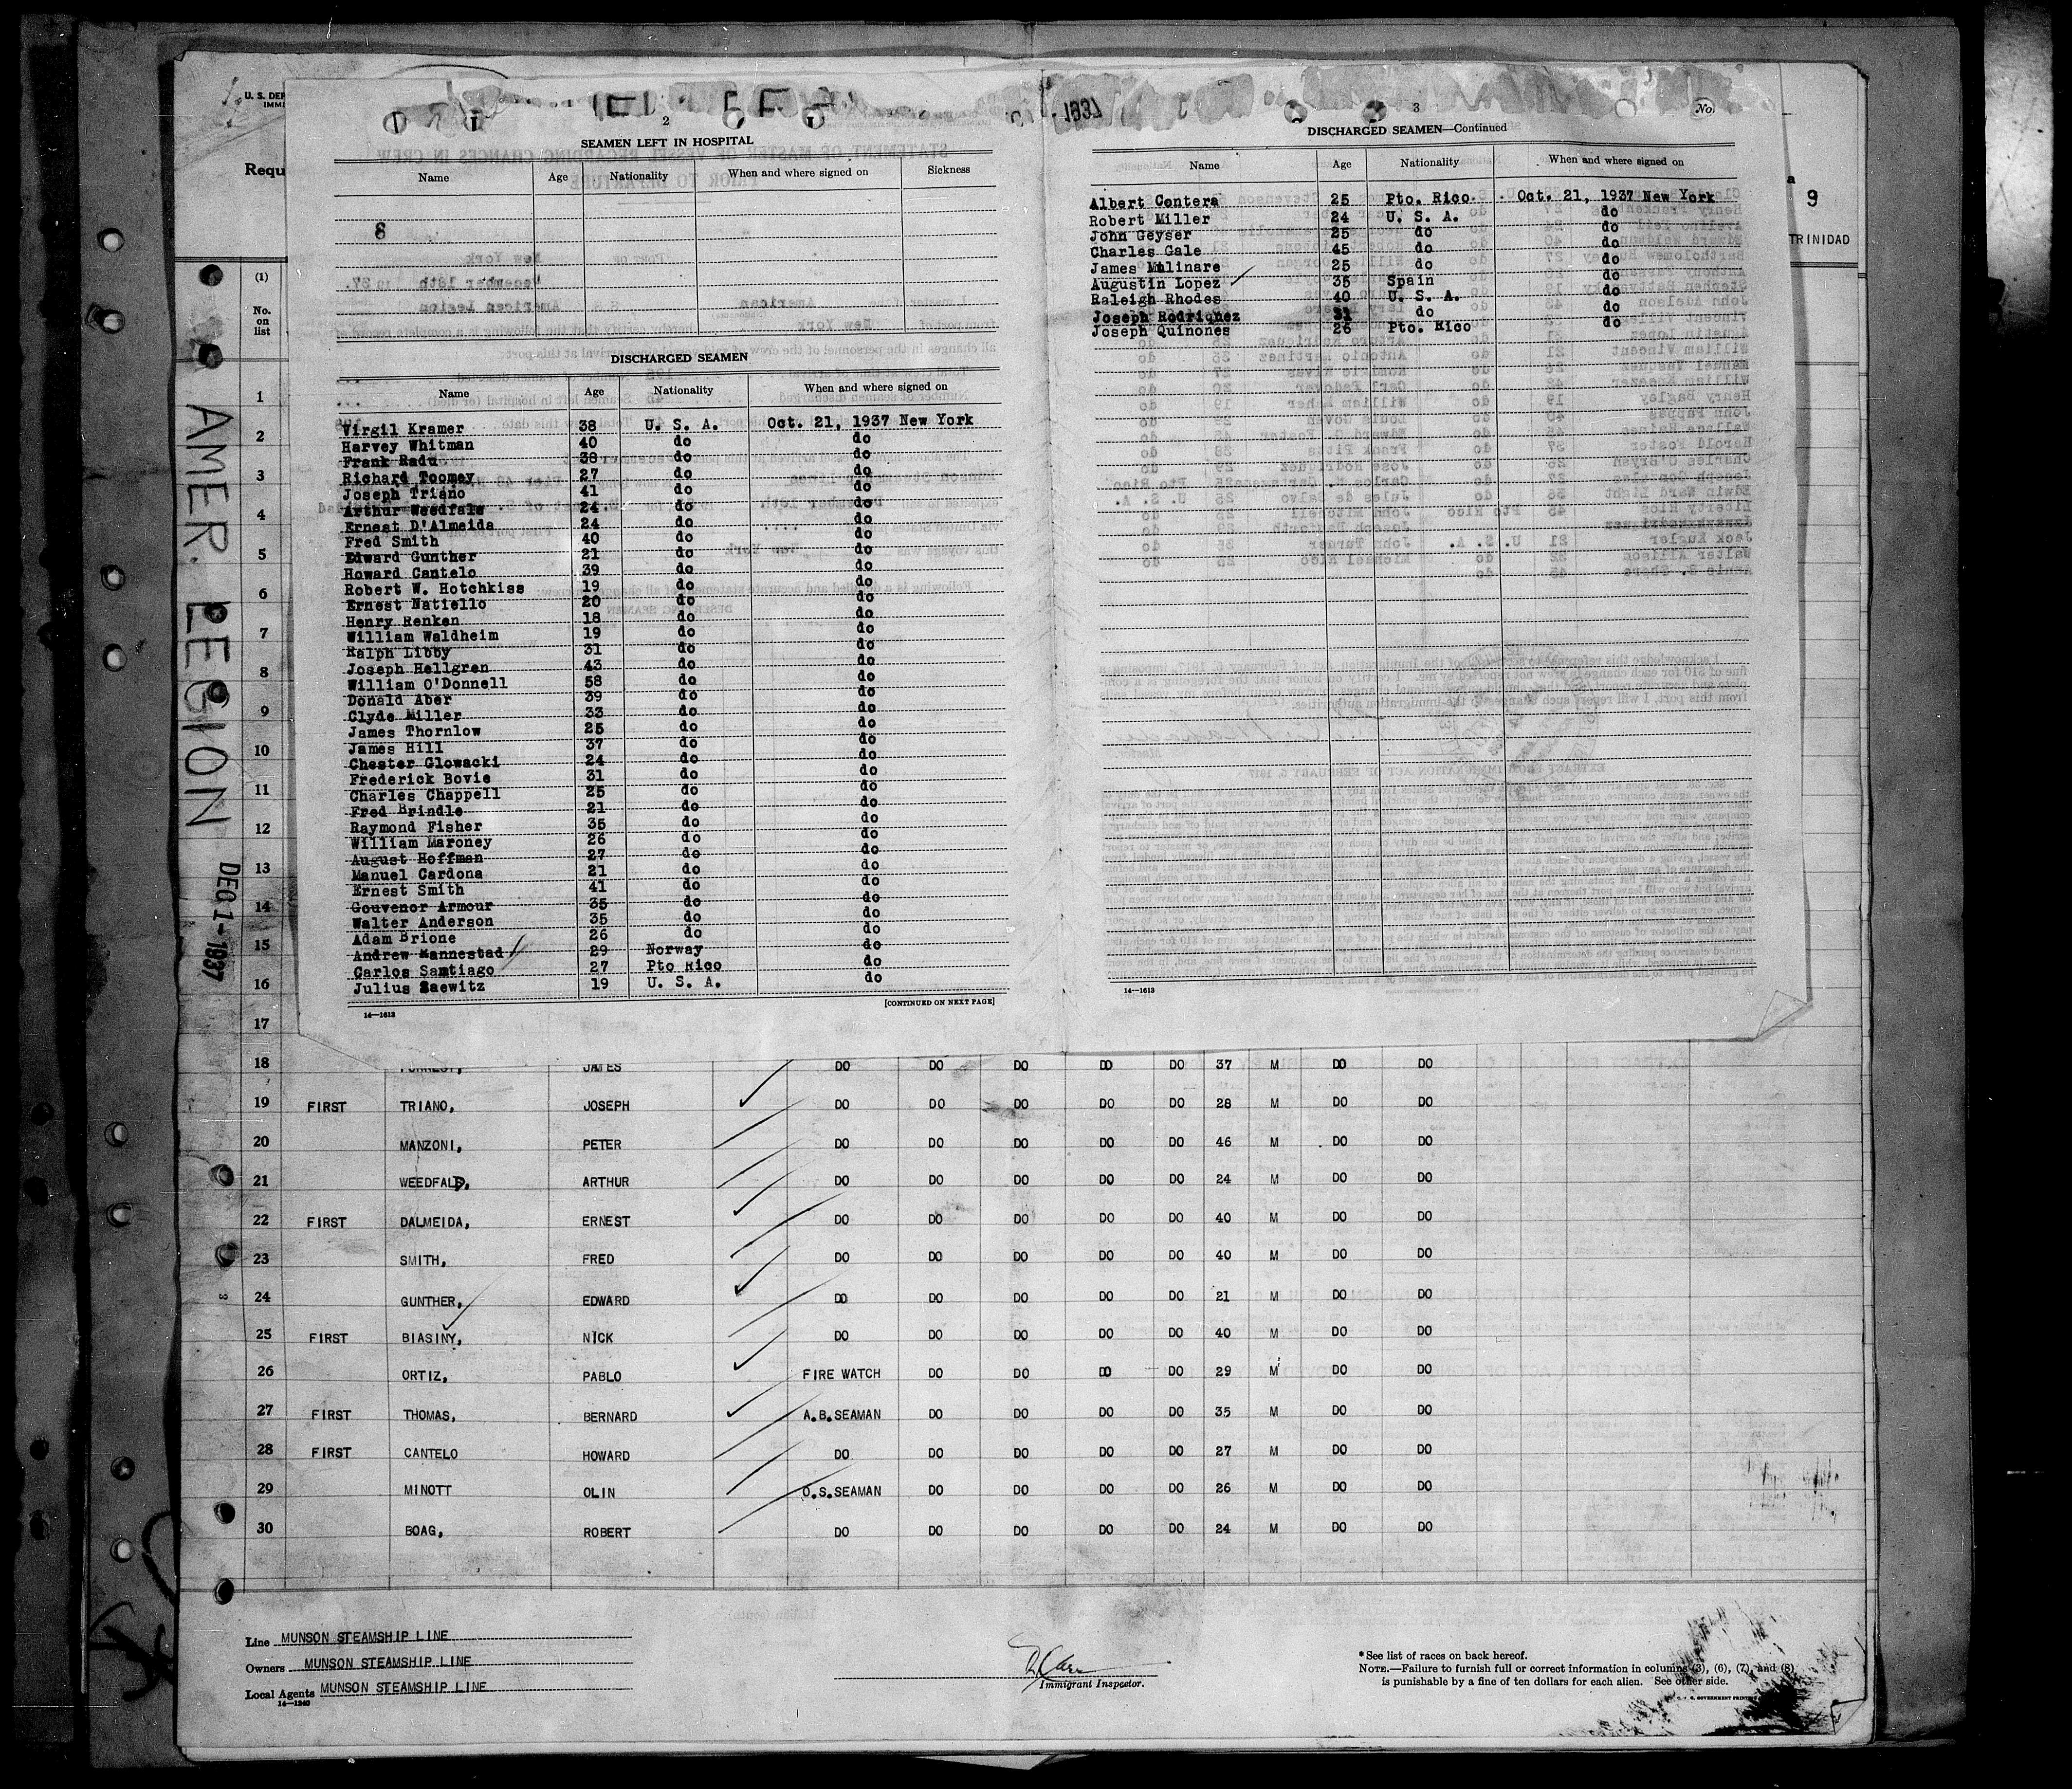 U. S. DEP
IMMI
Requ
2
SEAMEN LEFT IN HOSPITAL
Name Age Nationality When and where signed on Sickness
8
DISCHARGED SEAMEN
Name Age Nationality When and where signed on
Virgil Kramer 38 U. S. A. Oct. 21, 1937 New York
Harvey Whitman 40 do do
Frank Radu 38 do do
Richard Toomey 27 do do
Joseph Triano 41 do do
Arthur Weedfals 24 do do
Ernest D'Almeida 24 do do
Fred Smith 40 do do
Edward Gunther 21 do do
Howard Cantelo 39 do do
Robert W. Hotchkiss 19 do do
Ernest Natiello 20 do do
Henry Renken 18 do do
William Waldheim 19 do do
Ralph Libby 31 do do
Joseph Hellgren 43 do do
William O'Donnell 58 do do
Donald Aber 39 do do
Clyde Miller 33 do do
James Thornlow 25 do do
James Hill 37 do do
Chester Glowacki 24 do do
Frederick Bovie 31 do do
Charles Chappell 25 do do
Fred Brindle 21 do do
Raymond Fisher 35 do do
William Maroney 26 do do
August Hoffman 27 do do
Manuel Cardona 21 do do
Ernest Smith 41 do do
Gouvenor Armour 35 do do
Walter Anderson 35 do do
Adam Brione 26 do do
Andrew Mannestad 29 Norway do
Carlos Santiago 27 Pto Rico do
Julius Saewitz 19 U. S. A. do
[CONTINUED ON NEXT PAGE]
14—1613
1937
3
No.
DISCHARGED SEAMEN—Continued
Name Age Nationality When and where signed on
Albert Contera 25 Pto. Rico. Oct. 21, 1937 New York
Robert Miller 24 U. S. A. do
John Geyser 25 do do
Charles Gale 45 do do
James Malinare 25 do do
Augustin Lopez 35 Spain do
Raleigh Rhodes 40 U. S. A. do
Joseph Rodriquez 31 do do
Joseph Quinones 26 Pto. Rico do
14—1613
9
TRINIDAD
AMER. LEGION
DEC 1-1937
(1)
No. on list
1
2
3
4
5
6
7
8
9
10
11
12
13
14
15
16
17
18 FORREST, JAMES DO DO DO DO DO 37 M DO DO
19 FIRST TRIANO, JOSEPH DO DO DO DO DO 28 M DO DO
20 MANZONI, PETER DO DO DO DO DO 46 M DO DO
21 WEEDFALD, ARTHUR DO DO DO DO DO 24 M DO DO
22 FIRST DALMEIDA, ERNEST DO DO DO DO DO 40 M DO DO
23 SMITH, FRED DO DO DO DO DO 40 M DO DO
24 GUNTHER, EDWARD DO DO DO DO DO 21 M DO DO
25 FIRST BIASINY, NICK DO DO DO DO DO 40 M DO DO
26 ORTIZ, PABLO FIRE WATCH DO DO DO DO 29 M DO DO
27 FIRST THOMAS, BERNARD A.B.SEAMAN DO DO DO DO 35 M DO DO
28 FIRST CANTELO HOWARD DO DO DO DO DO 27 M DO DO
29 MINOTT OLIN O.S.SEAMAN DO DO DO DO 26 M DO DO
30 BOAG, ROBERT DO DO DO DO DO 24 M DO DO
Line MUNSON STEAMSHIP LINE
Owners MUNSON STEAMSHIP LINE
Local Agents MUNSON STEAMSHIP LINE
14—1240
Immigrant Inspector.
* See list of races on back hereof.
NOTE.—Failure to furnish full or correct information in columns (3), (6), (7), and (8)
is punishable by a fine of ten dollars for each alien. See other side.